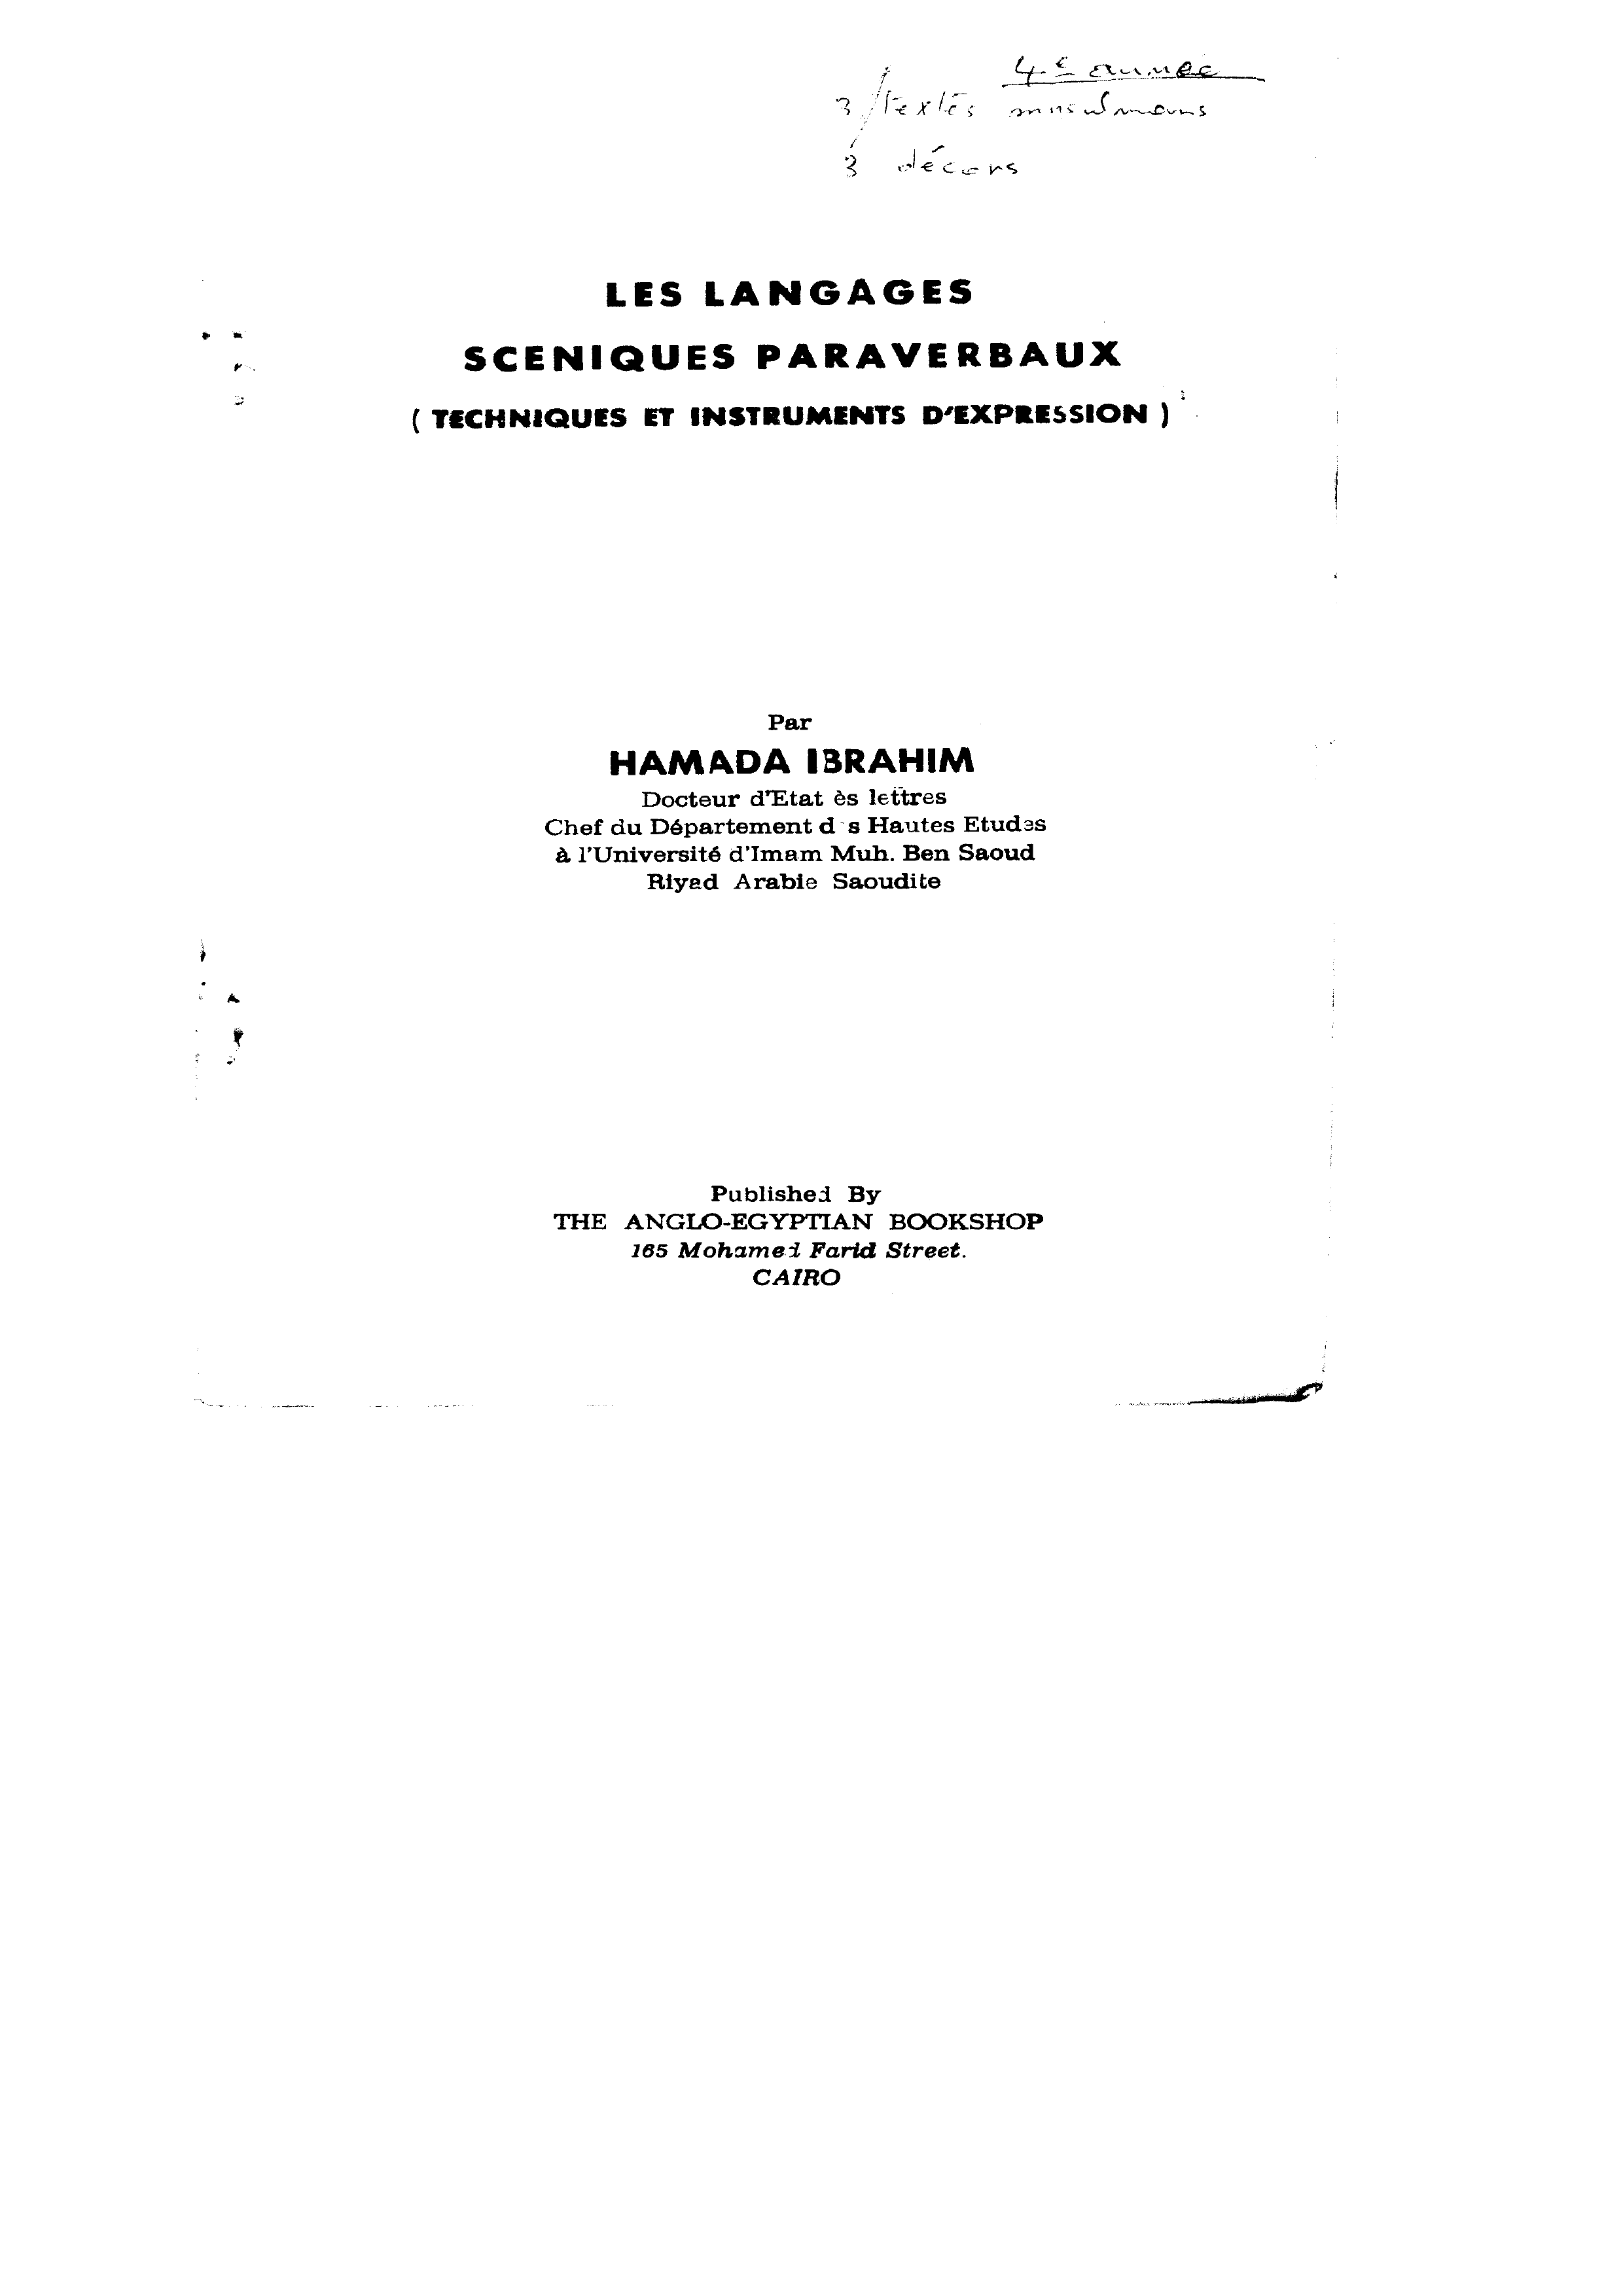 4e année
3 textes musulmans
3 décors
LES LANGAGES
SCENIQUES PARAVERBAUX
( TECHNIQUES ET INSTRUMENTS D'EXPRESSION )
Par
HAMADA IBRAHIM
Docteur d'Etat ès lettres
Chef du Département des Hautes Etudes
à l'Université d'Imam Muh. Ben Saoud
Riyad Arabie Saoudite
Published By
THE ANGLO-EGYPTIAN BOOKSHOP
165 Mohamed Farid Street.
CAIRO